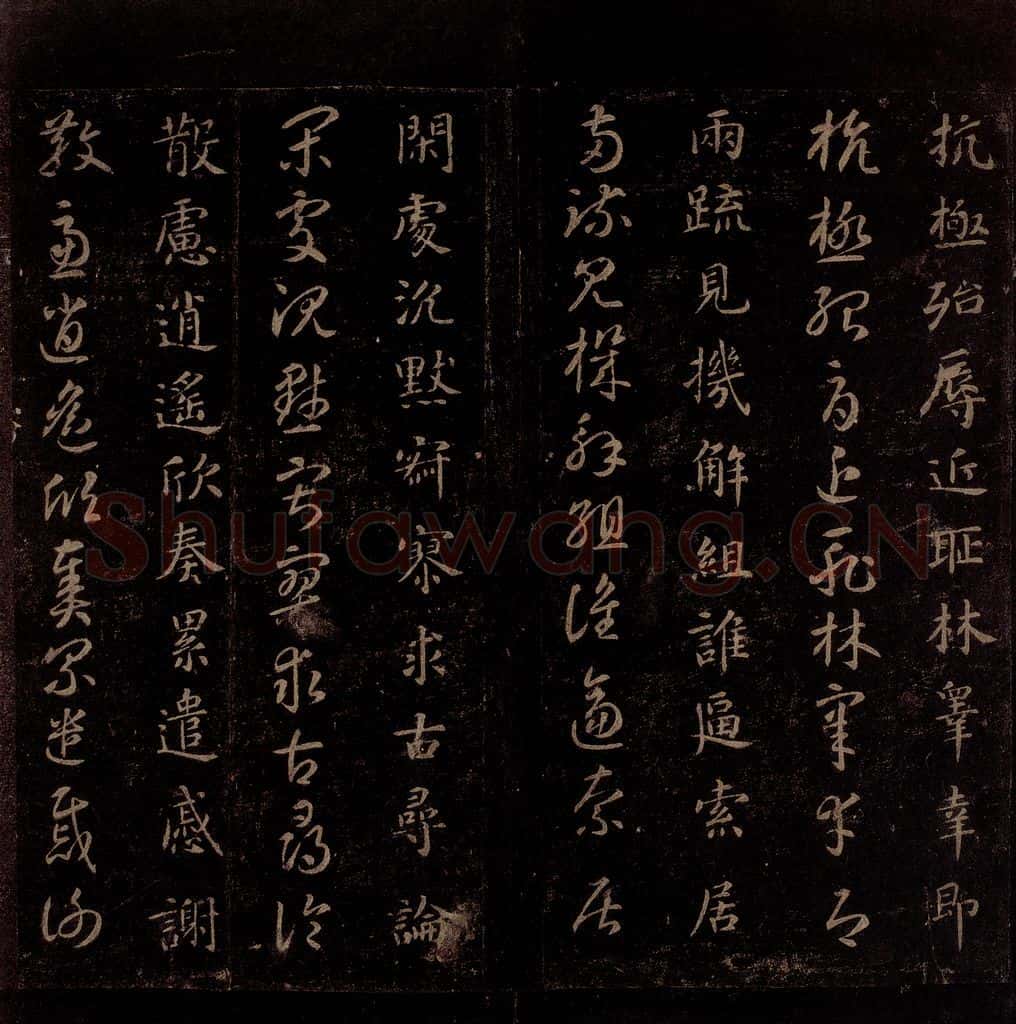 抗極殆辱近耻林睾幸即
抗極殆辱近耻林睾幸即
兩疏見機解組誰逼索居
兩疏見機解組誰逼索居
閑處沉默寂寥求古尋論
閑處沉默寂寥求古尋論
散慮逍遙欣奏累遣慼謝
散慮逍遙欣奏累遣慼謝
Shufawang.CN